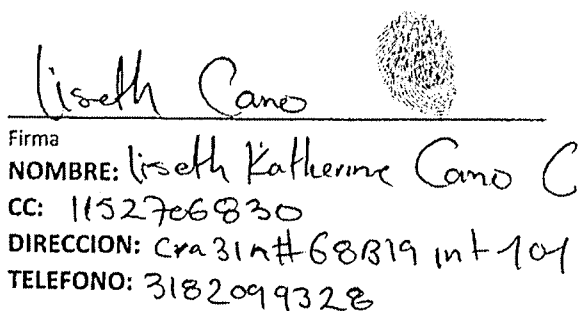 Liseth Cano
Firma
NOMBRE: Liseth Katherine Cano C
CC: 1152706830
DIRECCION: Cra 31n # 68B19 int 101
TELEFONO: 3182099328